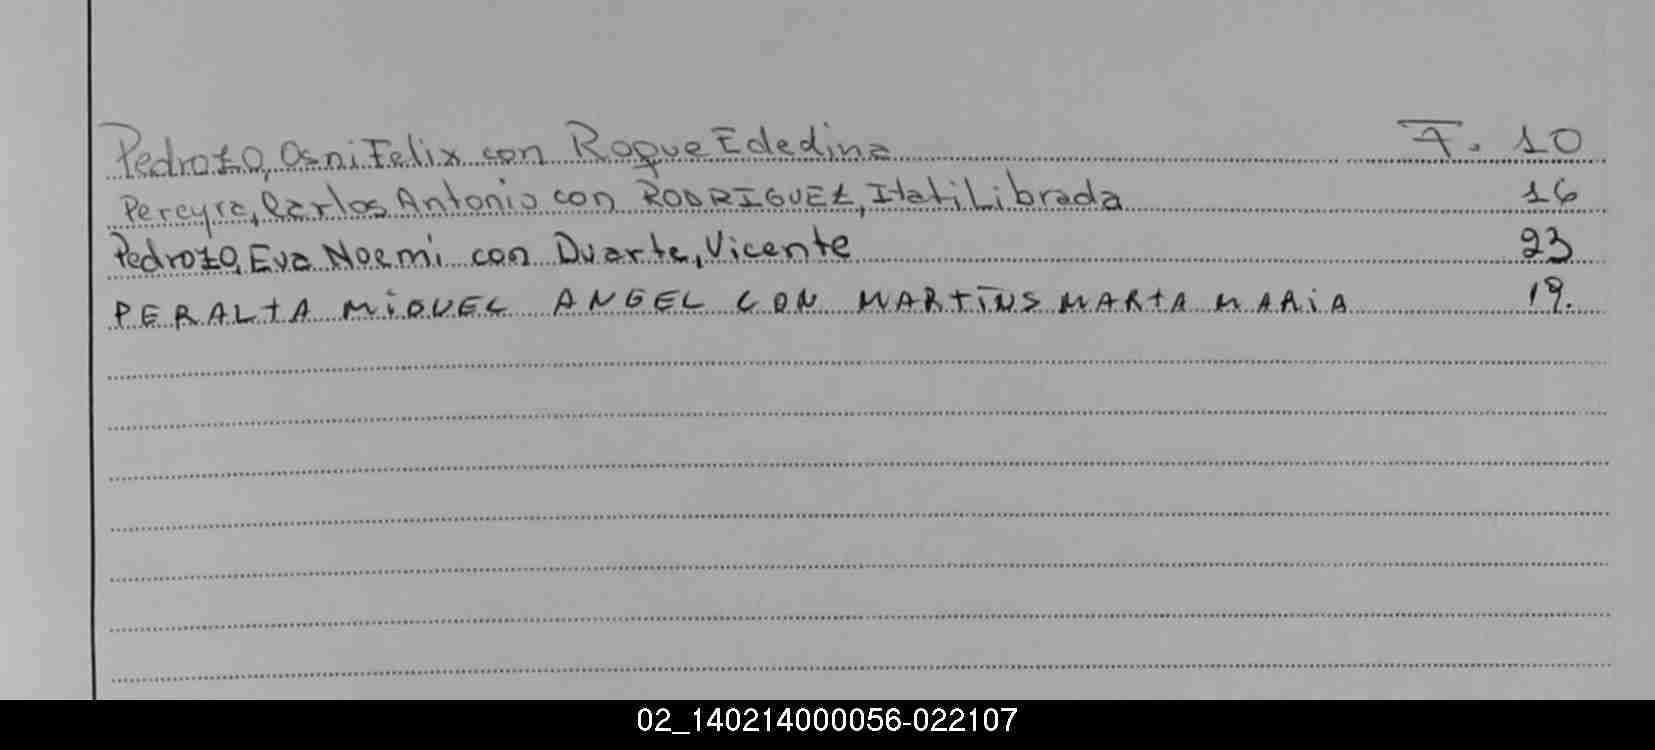 Pedrozo, Osni Felix con Roque Ededina F. 10
Pereyra, Carlos Antonio con RODRIGUEZ, Itati Librada 16
Pedrozo, Eva Noemi con Duarte, Vicente 23
PERALTA MIGUEL ANGEL CON MARTINS MARTA MARIA 19.
02_140214000056-022107